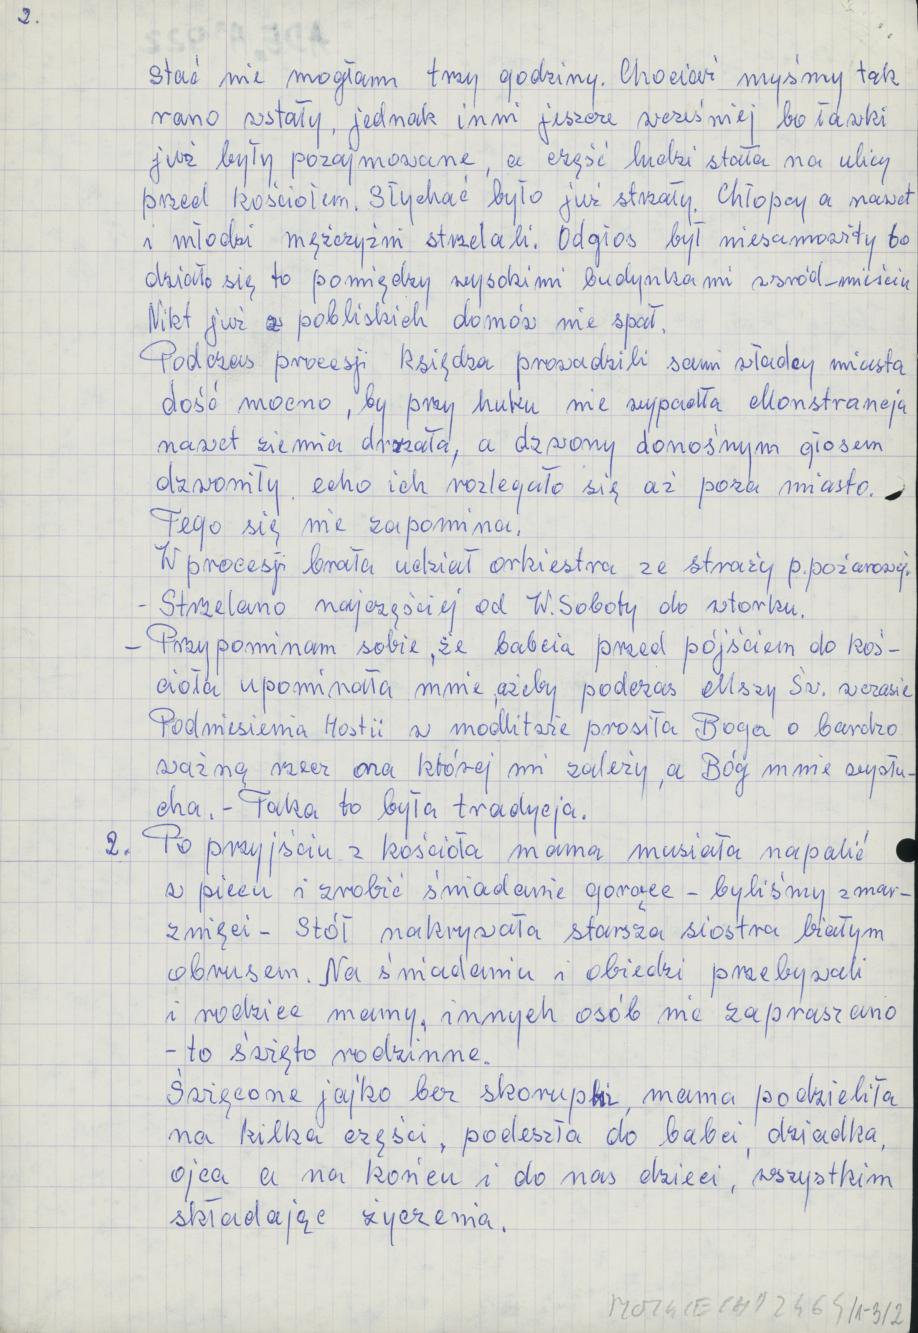 2.
stać nie mogłam trzy godziny. Chociaż myśmy tak
rano wstały, jednak inni jeszcze wcześniej bo ławki
już były pozajmowane, a część ludzi stała na ulicy
przed kościołem. Słychać było już strzały. Chłopcy a nawet
i młodzi mężczyźni strzelali. Odgłos był niesamowity bo
działo się to pomiędzy wysokimi budynkami wśród-mieściu
Nikt już z pobliskich domów nie spał.
Podczas procesji księdza prowadzili sami władcy miasta
dość mocno, by przy huku nie wypadła Monstrancja
nawet ziemia drżała, a dzwony donośnym głosem
dzwoniły echo ich rozlegało się aż poza miasto.
Tego się nie zapomina.
W procesji brała udział orkiestra ze straży p.pożarowej.
- Strzelano najczęściej od W.Soboty do wtorku.
- Przypominam sobie, że babcia przed pójściem do koś-
cioła upominała mnie, ażeby podczas Mszy Św. w czasie
Podniesienia Hostii w modlitwie prosiła Boga o bardzo
ważną rzecz na której mi zależy, a Bóg mnie wysłu-
cha. - Taka to była tradycja.
2. Po przyjściu z kościoła mama musiała napalić
w piecu i zrobić śniadanie gorące - byliśmy zmar-
znięci - Stół nakrywała starsza siostra białym
obrusem. Na śniadaniu i obiedzi przebywali
i rodzice mamy, innych osób nie zapraszano
- to święto rodzinne.
Święcone jajko bez skorupki, mama podzieliła
na kilka części, podeszła do babci, dziadka,
ojca a na końcu i do nas dzieci, wszystkim
składając życzenia.
2464/1-3/2